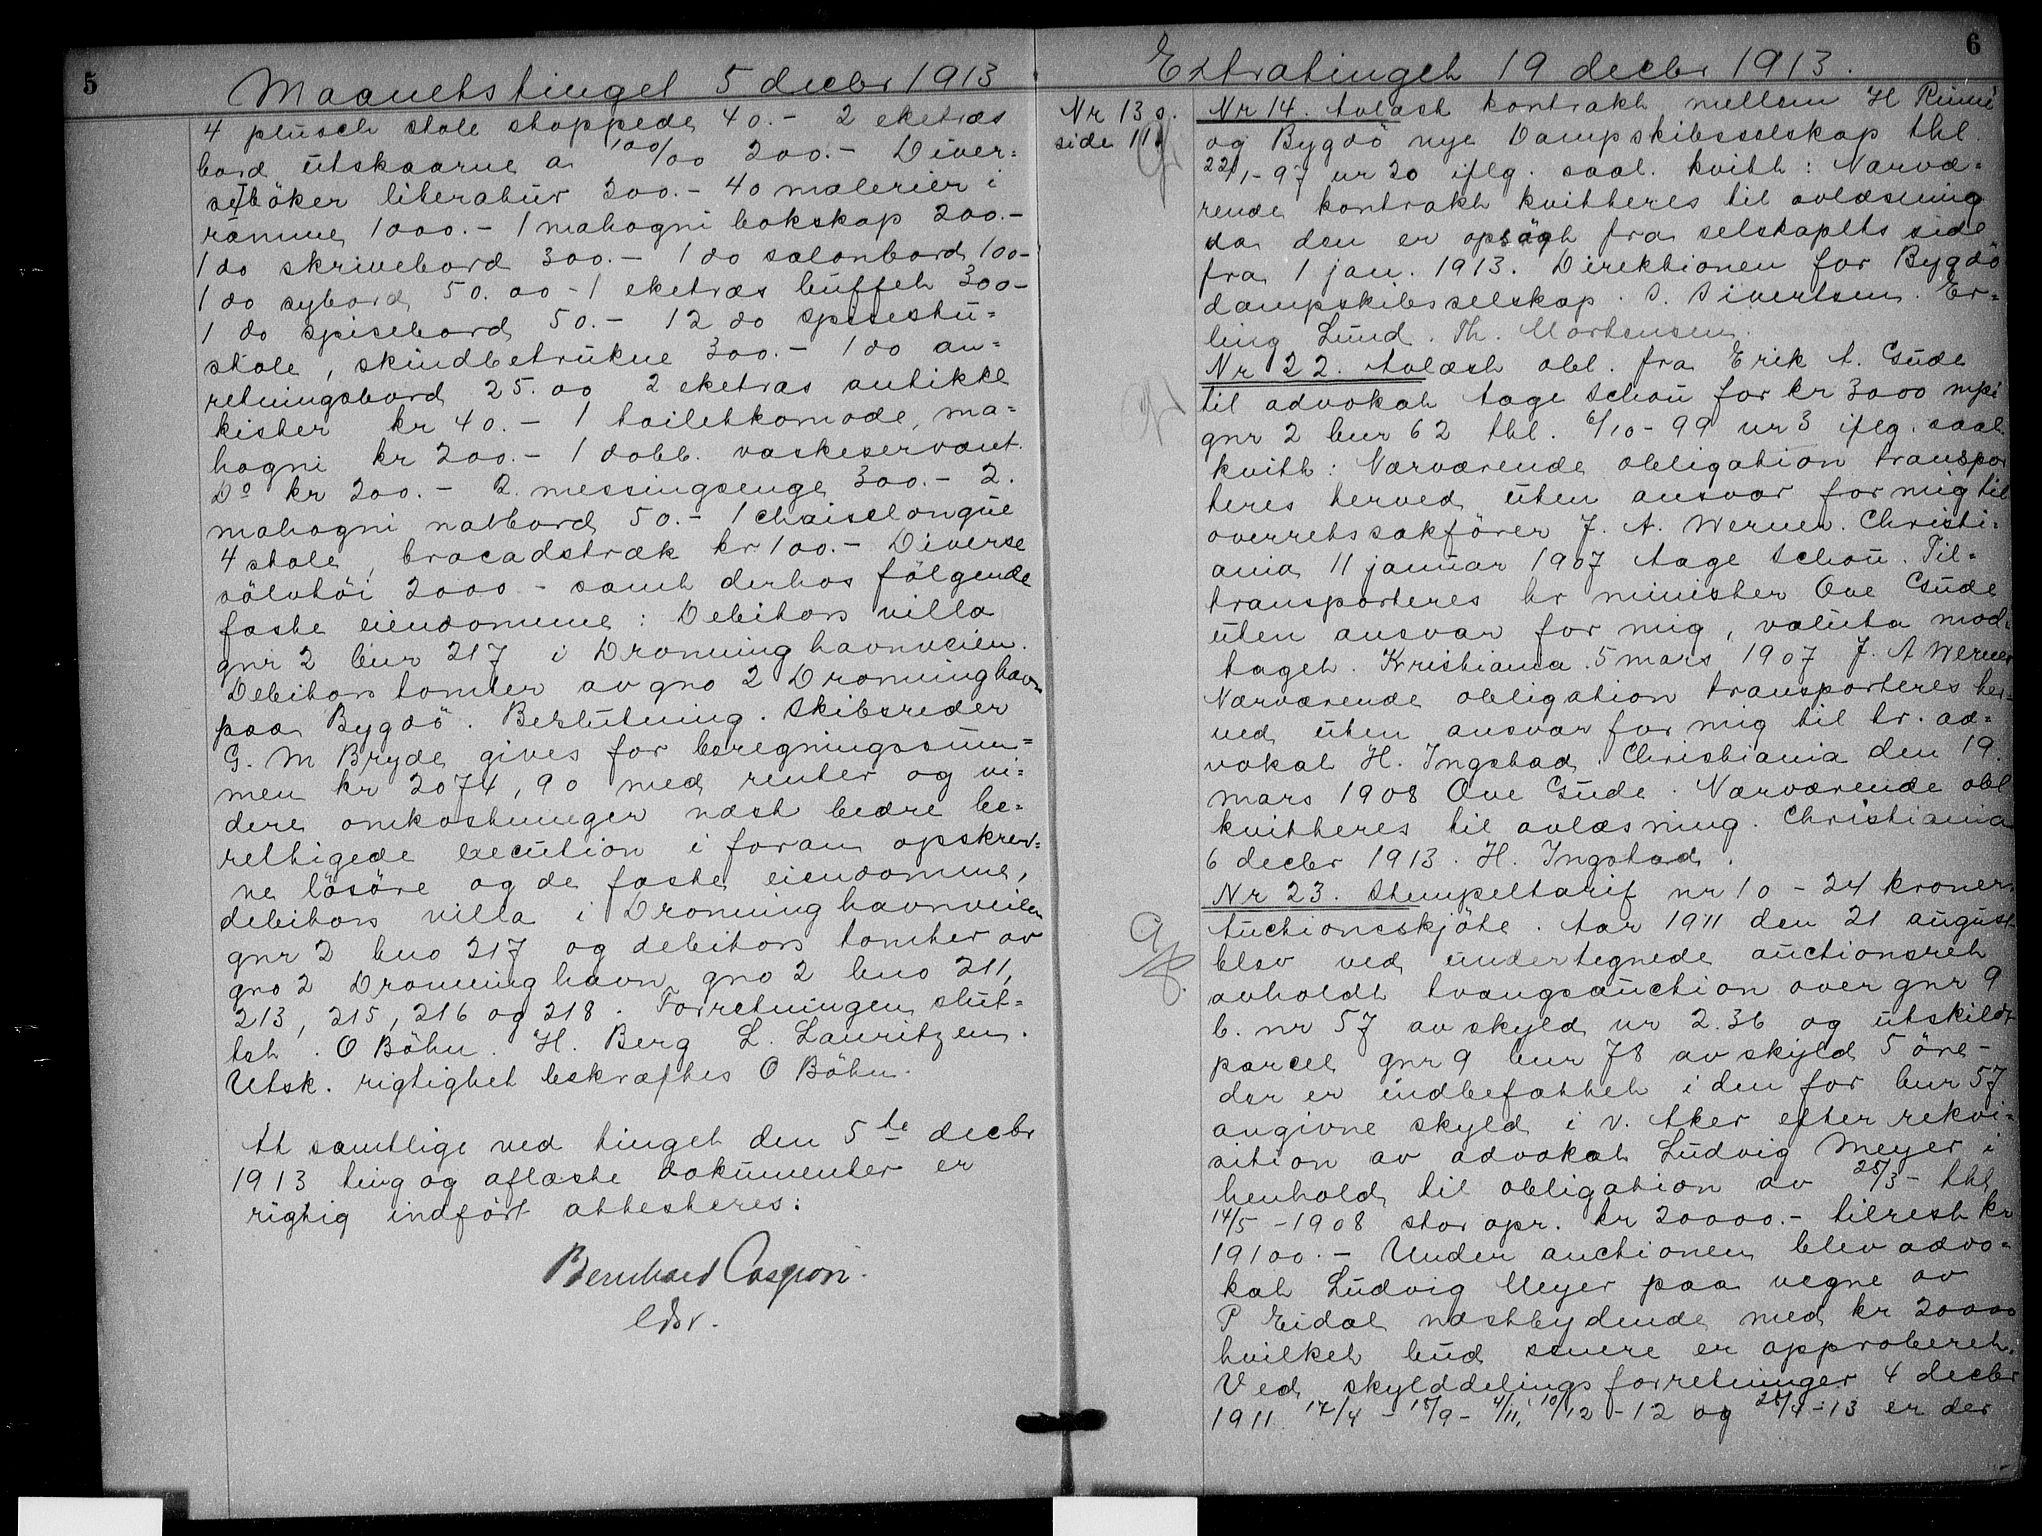 5
Maanetstinget 5 decbr 1913
4 plusch stole stoppede 40.- 2 eketræs
bord utskaarne a 100/00 200.- Diver=
se böker literatur 200.- 40 malerier i
ramme 1000.- 1 mahogni bokskap 200.-
1 do skrivebord 300.- 1 do salonbord 100-
1 do sybord 50.00 - 1 eketræs buffet 300-
1 do spisebord 50.- 12 do spisestu=
stole, skindbetrukne 300.- 1 do an=
retningsbord 25.00 2 eketræs antikke
kister kr 40.- 1 toiletkomode, ma=
hogni kr 200.- 1 dobb. vaskeservant
Do kr 200.- 2 messingsenge 300.- 2.
mahogni natbord 50.- 1 chaiselongue
4 stole, brocadstræk kr 100.- Diverse
sölvtöi 2000 - samt derhos fölgende
faste eiendomme: Debitors villa
gnr 2 bnr 217 i Dronninghavnveien.
Debitors tomter av gno 2 Dronninghavn
paa Bygdö. Beslutning. Skibsreder
G. M Bryde gives for beregningssum=
men kr 2074,90 med renter og vi=
dere omkostninger næst bedre be=
rettigede execution i foran opskrev=
ne lösöre og de faste eiendomme,
debitors villa i Dronninghavnveien
gnr 2 bno 217 og debitors tomter av
gno 2 Dronninghavn gno 2 bno 211,
213, 215, 216 og 218. Forretningen slut=
tet. O Böhn. H. Berg L. Lauritzen.
Utsk. rigtighet bekræftes O Böhn.
At samtlige ved tinget den 5te decbr
1913 ting og aflæste dokumenter er
rigtig indfört attesteres:
Bernhard Caspari.
cst.
6
Extratinget 19 decbr 1913.
Nr 13 s.
side 11
Nr 14. Avlæst kontrakt mellem H
og Bygdö nye Dampskibsselskap thl.
22/1-97 nr 20 iflg. saal. kvitt: Nærvæ=
rende kontrakt kvitteres til avlæsning
da den er opsagt fra selskapets side
fra 1 jan. 1913. Direktionen for Bygdö
dampskibsselskap. S. Sivertsen. Er=
ling Lund. Th. Mortensen.
Nr 22. Avlæst obl. fra Erik A. Gude
til advokat Aage Schou for kr 3000 mpi
gnr 2 bnr 62 thl. 6/10-99 nr 3 iflg. saal
kvitt: Nærværende obligation transpor
teres herved uten ansvar for mig til
overretssakförer J. A. Werner. Christi=
ania 11 januar 1907 Aage Schou. Til=
transporteres hr minister Ove Gude
uten ansvar for mig, valuta mod=
taget. Kristiania 5 mars 1907 J. A Werner
Nærværende obligation transporteres her=
ved uten ansvar for mig til hr. ad=
vokat H. Ingstad. Christiania den 19.
mars 1908 Ove Gude. Nærværende obl
kvitteres til avlæsning. Christiania
6 decbr 1913. H. Ingstad.
Nr 23. Stempeltarif nr 10 - 24 kroner.
Auctionsskjöte. Aar 1911 den 21 august
blev ved undertegnede auctionsret
avholdt tvangsauction over gnr 9
b. nr 57 av skyld nr 2.36 og utskilt
parcel gnr 9 bnr 78 av skyld 5 öre -
der er indbefattet i den for bnr 57
angivne skyld i V. Aker efter rekvi=
sition av advokat Ludvig Meyer i
henhold til obligation av 25/3 - thl
14/5-1908 stor opr. kr 20000.- tilrest kr
19100.- Under auctionen blev advo=
kat Ludvig Meyer paa vegne av
P Eidal næstbydende med kr 20000
hvilket bud senere er approberet.
Ved skylddelingsforretninger 4 decbr
1911 17/4 - 15/9 - 4/11, 10/12-12 og 25/4-13 er der